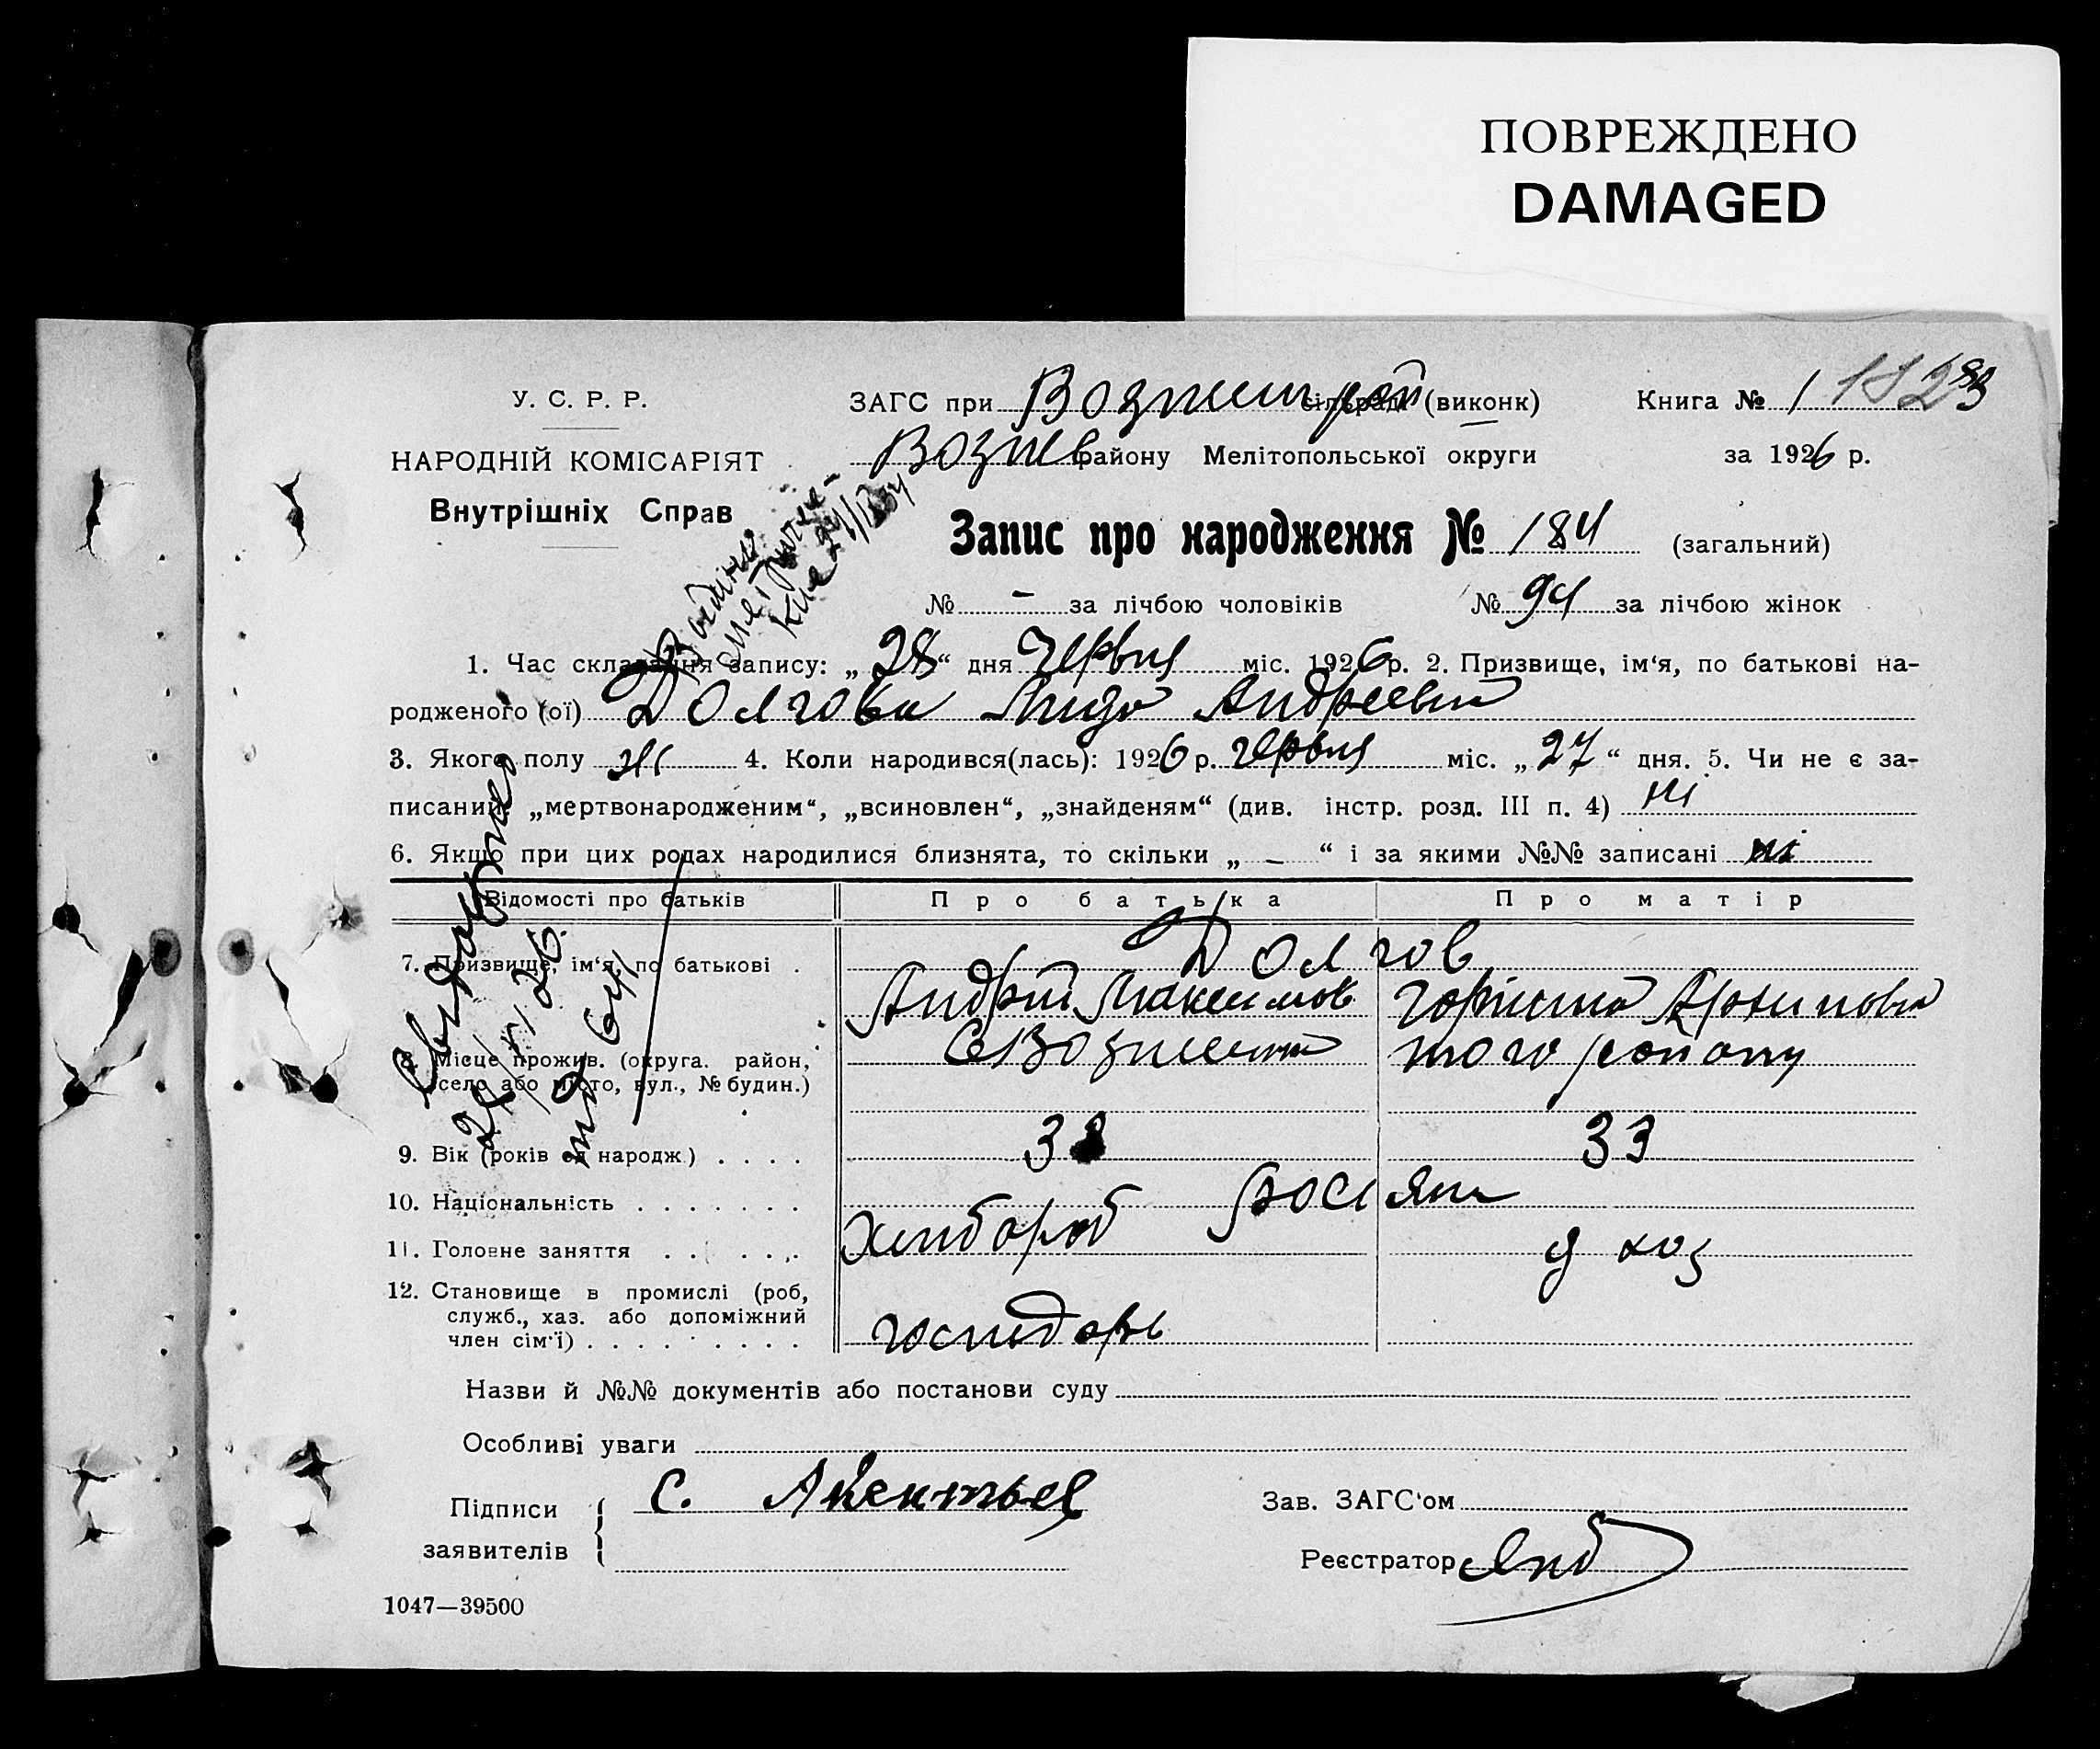 ПОВРЕЖДЕНО
DAMAGED
У. С. Р. Р.
НАРОДНІЙ КОМІСАРІЯТ
Внутрішніх Справ
ЗАГС при сільраді (виконк)
Книга № 1
Вознев району Мелітопольської округи
за 1926 р.
Запис про народження № 184 (загальний)
№ – за лічбою чоловіків № 94 за лічбою жінок
1. Час складання запису: „28“ дня червня міс. 1926 р. 2. Призвище, ім‘я, по батькові на-
родженого (ої) Долгова Лида Андреевна
3. Якого полу ж 4. Коли народився(лась): 1926 р. червня міс. „27“ дня. 5. Чи не є за-
писаний „мертвонародженим“, „всиновлен“, „знайденям“ (див. інстр. розд. III п. 4) ні
6. Якщо при цих родах народилися близнята, то скільки „ – “ і за якими №№ записані ні
Відомості про батьків
Про батька
Про матір
7. Призвище, ім‘я, по батькові .
Долгов
Андрій Максимов
Архиповна
8. Місце прожив. (округа. район,
село або місто, вул., № будин.)
того району
9. Вік (років од народж.) . . . .
33
10. Національність . . . . . . .
росіяни
11. Головне заняття . . . . . .
хлібороб
д хоз
12. Становище в промислі (роб,
служб., хаз. або допоміжний
член сім‘ї) . . . . . . . . .
господарь
Назви й №№ документів або постанови суду
Особливі уваги
Підписи
заявителів
С.
Зав. ЗАГС‘ом
Реєстратор
1047—39500